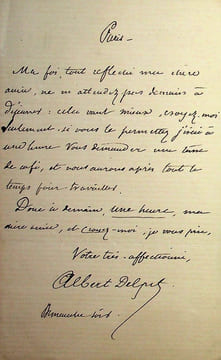 Paris —
Ma foi, tout réfléchi ma chère
amie, ne m'attendez pas demain à
déjeuner : cela vaut mieux, croyez-moi
seulement si vous le permettez j'irai à
une heure vous demander une tasse
de café, et nous aurons après tout le
temps pour travailler.
Donc à demain, une heure, ma
chère amie, et croyez-moi, je vous prie,
Votre très affectionné,
Albert Delpit
Dimanche soir